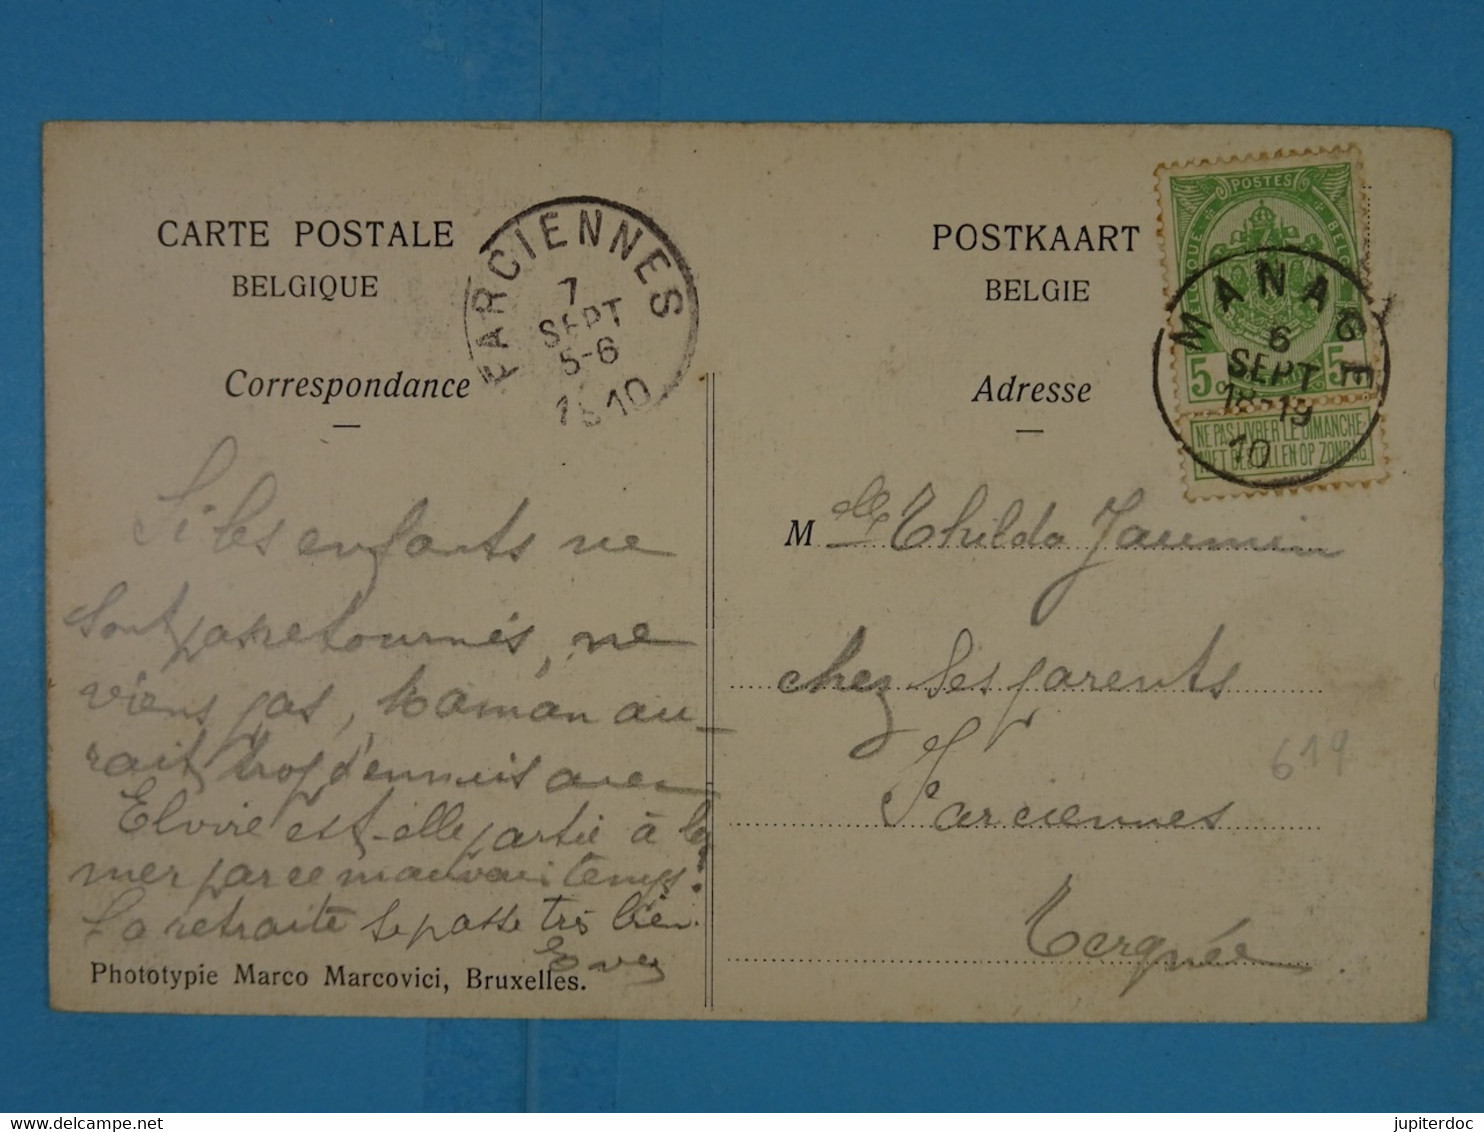 CARTE POSTALE
BELGIQUE
Correspondance
FARCIENNES
7
SEPT
5-6
1910
Si les enfants ne
sont pas retournés, ne
viens pas, Maman au-
rait trop d'ennuis avec
Elvire est-elle partie à la
mer par ce mauvais temps?
La retraite se passe très bien.
Phototypie Marco Marcovici, Bruxelles.
POSTKAART
BELGIE
Adresse
POSTES
5 5
NE PAS LIVRER LE DIMANCHE
NIET BESTELLEN OP ZONDAG
MANAGE
6
SEPT
18-19
10
Melle Thilda Jaumin
chez ses parents
Farciennes
Tergnée
619
jupiterdoc